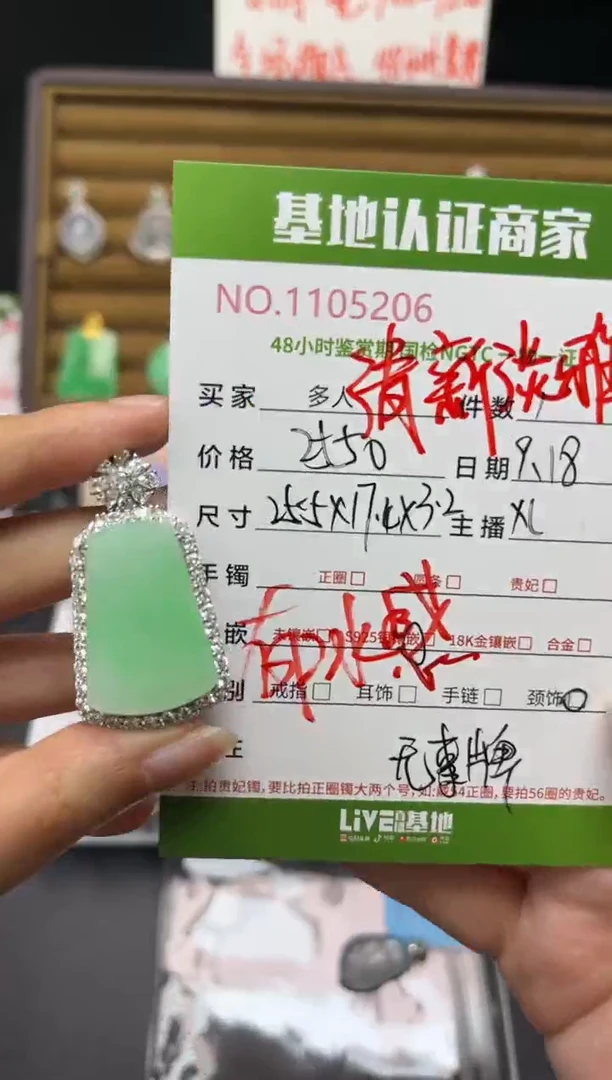 基地认证商家
NO.1105206
48小时鉴赏期 国检NGTC 一物一证
清新淡雅
买家 多人 件数 1
价格 2550 日期 9.18
尺寸 25.5X17.4X3.2 主播 XL
手镯 正圈 圆条 贵妃
嵌 未镶嵌 S925银镶嵌 18K金镶嵌 合金
有水感
别 戒指 耳饰 手链 颈饰
无事牌
注:拍贵妃镯,要比拍正圈镯大两个号,如:戴54正圈,要拍56圈的贵妃。
LiVE基地